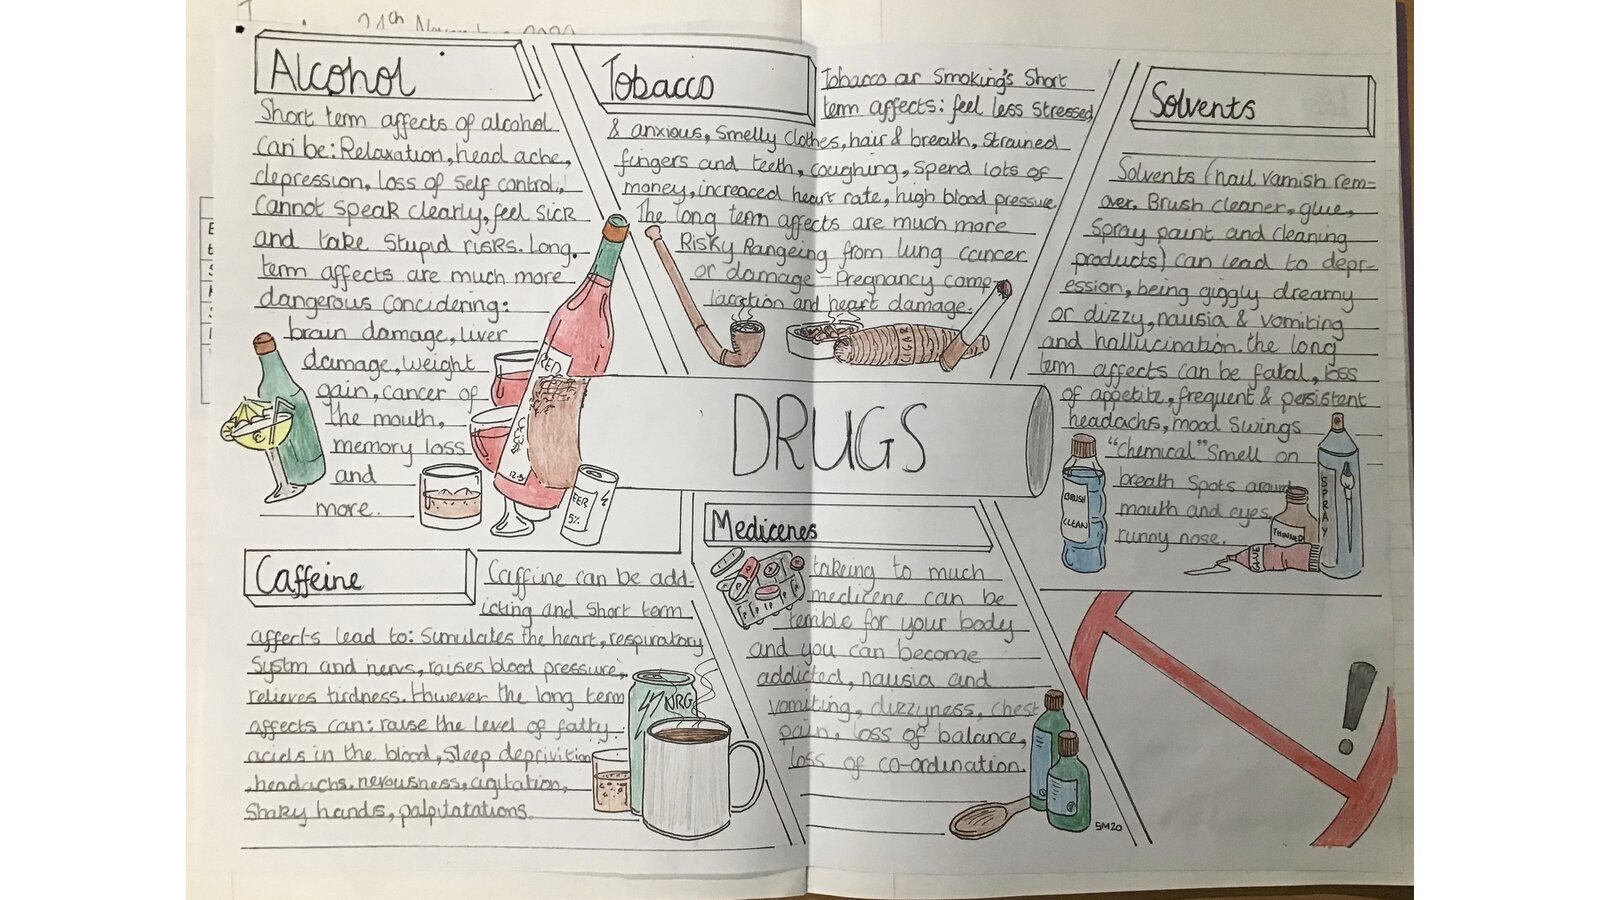 24th November 2020
Alcohol
Short term affects of alcohol
can be: Relaxation, head ache,
depression, loss of self control,
cannot speak clearly, feel sick
and take stupid risks. Long
term affects are much more
dangerous concidering:
brain damage, liver
damage, weight
gain, cancer of
the mouth,
memory loss
and
more.
RED
12%
BEER
5%
Tobacco
Tobacco or Smoking's Short
term affects: feel less stressed
& anxious, smelly clothes, hair & breath, Strained
fingers and teeth, coughing, spend lots of
money, increaced heart rate, high blood pressure.
The long term affects are much more
Risky Rangeing from lung cancer
or damage - Pregnancy comp-
lacation and heart damage.
CIGAR
Solvents
Solvents (nail varnish rem-
over. Brush cleaner, glue,
Spray paint and cleaning
products) can lead to depr-
ession, being giggly dreamy
or dizzy, nausia & vomiting
and hallucination. the long
term affects can be fatal, loss
of appetite, frequent & persistent
headachs, mood swings
"chemical" Smell on
breath spots around
mouth and eyes,
runny nose.
BRUSH
CLEAN
SPRAY
THINNER
GLUE
DRUGS
Caffeine
Caffiine can be add-
icting and short term
affects lead to: Simulates the heart, respiratory
Systm and nervs, raises blood pressure,
relieves tirdness. However the long term
affects can: raise the level of fatty
acids in the blood, sleep deprivition
, headachs, nervousness, agitation,
Shaky hands, palpitatations.
NRG
Medicenes
takeing to much
medicene can be
terrible for your body
and you can become
addicted, nausia and
vomiting, dizzyness, chest
pain, loss of balance,
loss of co-ordination.
SM20
!